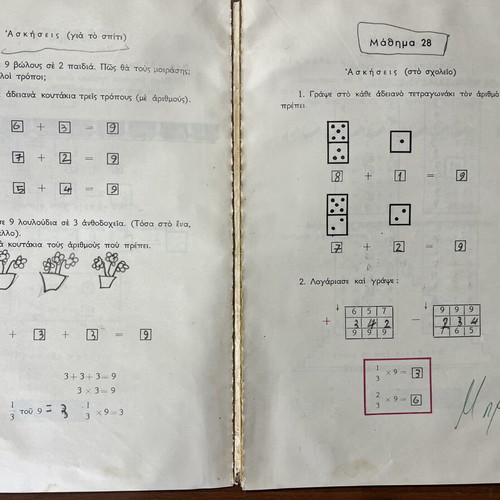 Ἀσκήσεις (γιὰ τὸ σπίτι)
9 βώλους σὲ 2 παιδιά. Πῶς θὰ τοὺς μοιράσης;
λοὶ τρόποι;
ἀδειανὰ κουτάκια τρεῖς τρόπους (μὲ ἀριθμούς).
6 + 3 = 9
7 + 2 = 9
5 + 4 = 9
ε 9 λουλούδια σὲ 3 ἀνθοδοχεῖα. (Τόσα στὸ ἕνα,
ἄλλο).
ὰ κουτάκια τοὺς ἀριθμοὺς ποὺ πρέπει.
+ 3 + 3 = 9
3+3+3=9
3 × 3 = 9
1/3 τοῦ 9 = 3 1/3 × 9 = 3
Μάθημα 28
Ἀσκήσεις (στὸ σχολεῖο)
1. Γράψε στὸ κάθε ἀδειανὸ τετραγωνάκι τὸν ἀριθμὸ
πρέπει
8 + 1 = 9
7 + 2 = 9
2. Λογάριασε καὶ γράψε:
↓ 6 5 7 ↓ 9 9 9
+ 3 4 2 − 2 3 4
9 9 9 7 6 5
1/3 × 9 = 3
2/3 × 9 = 6